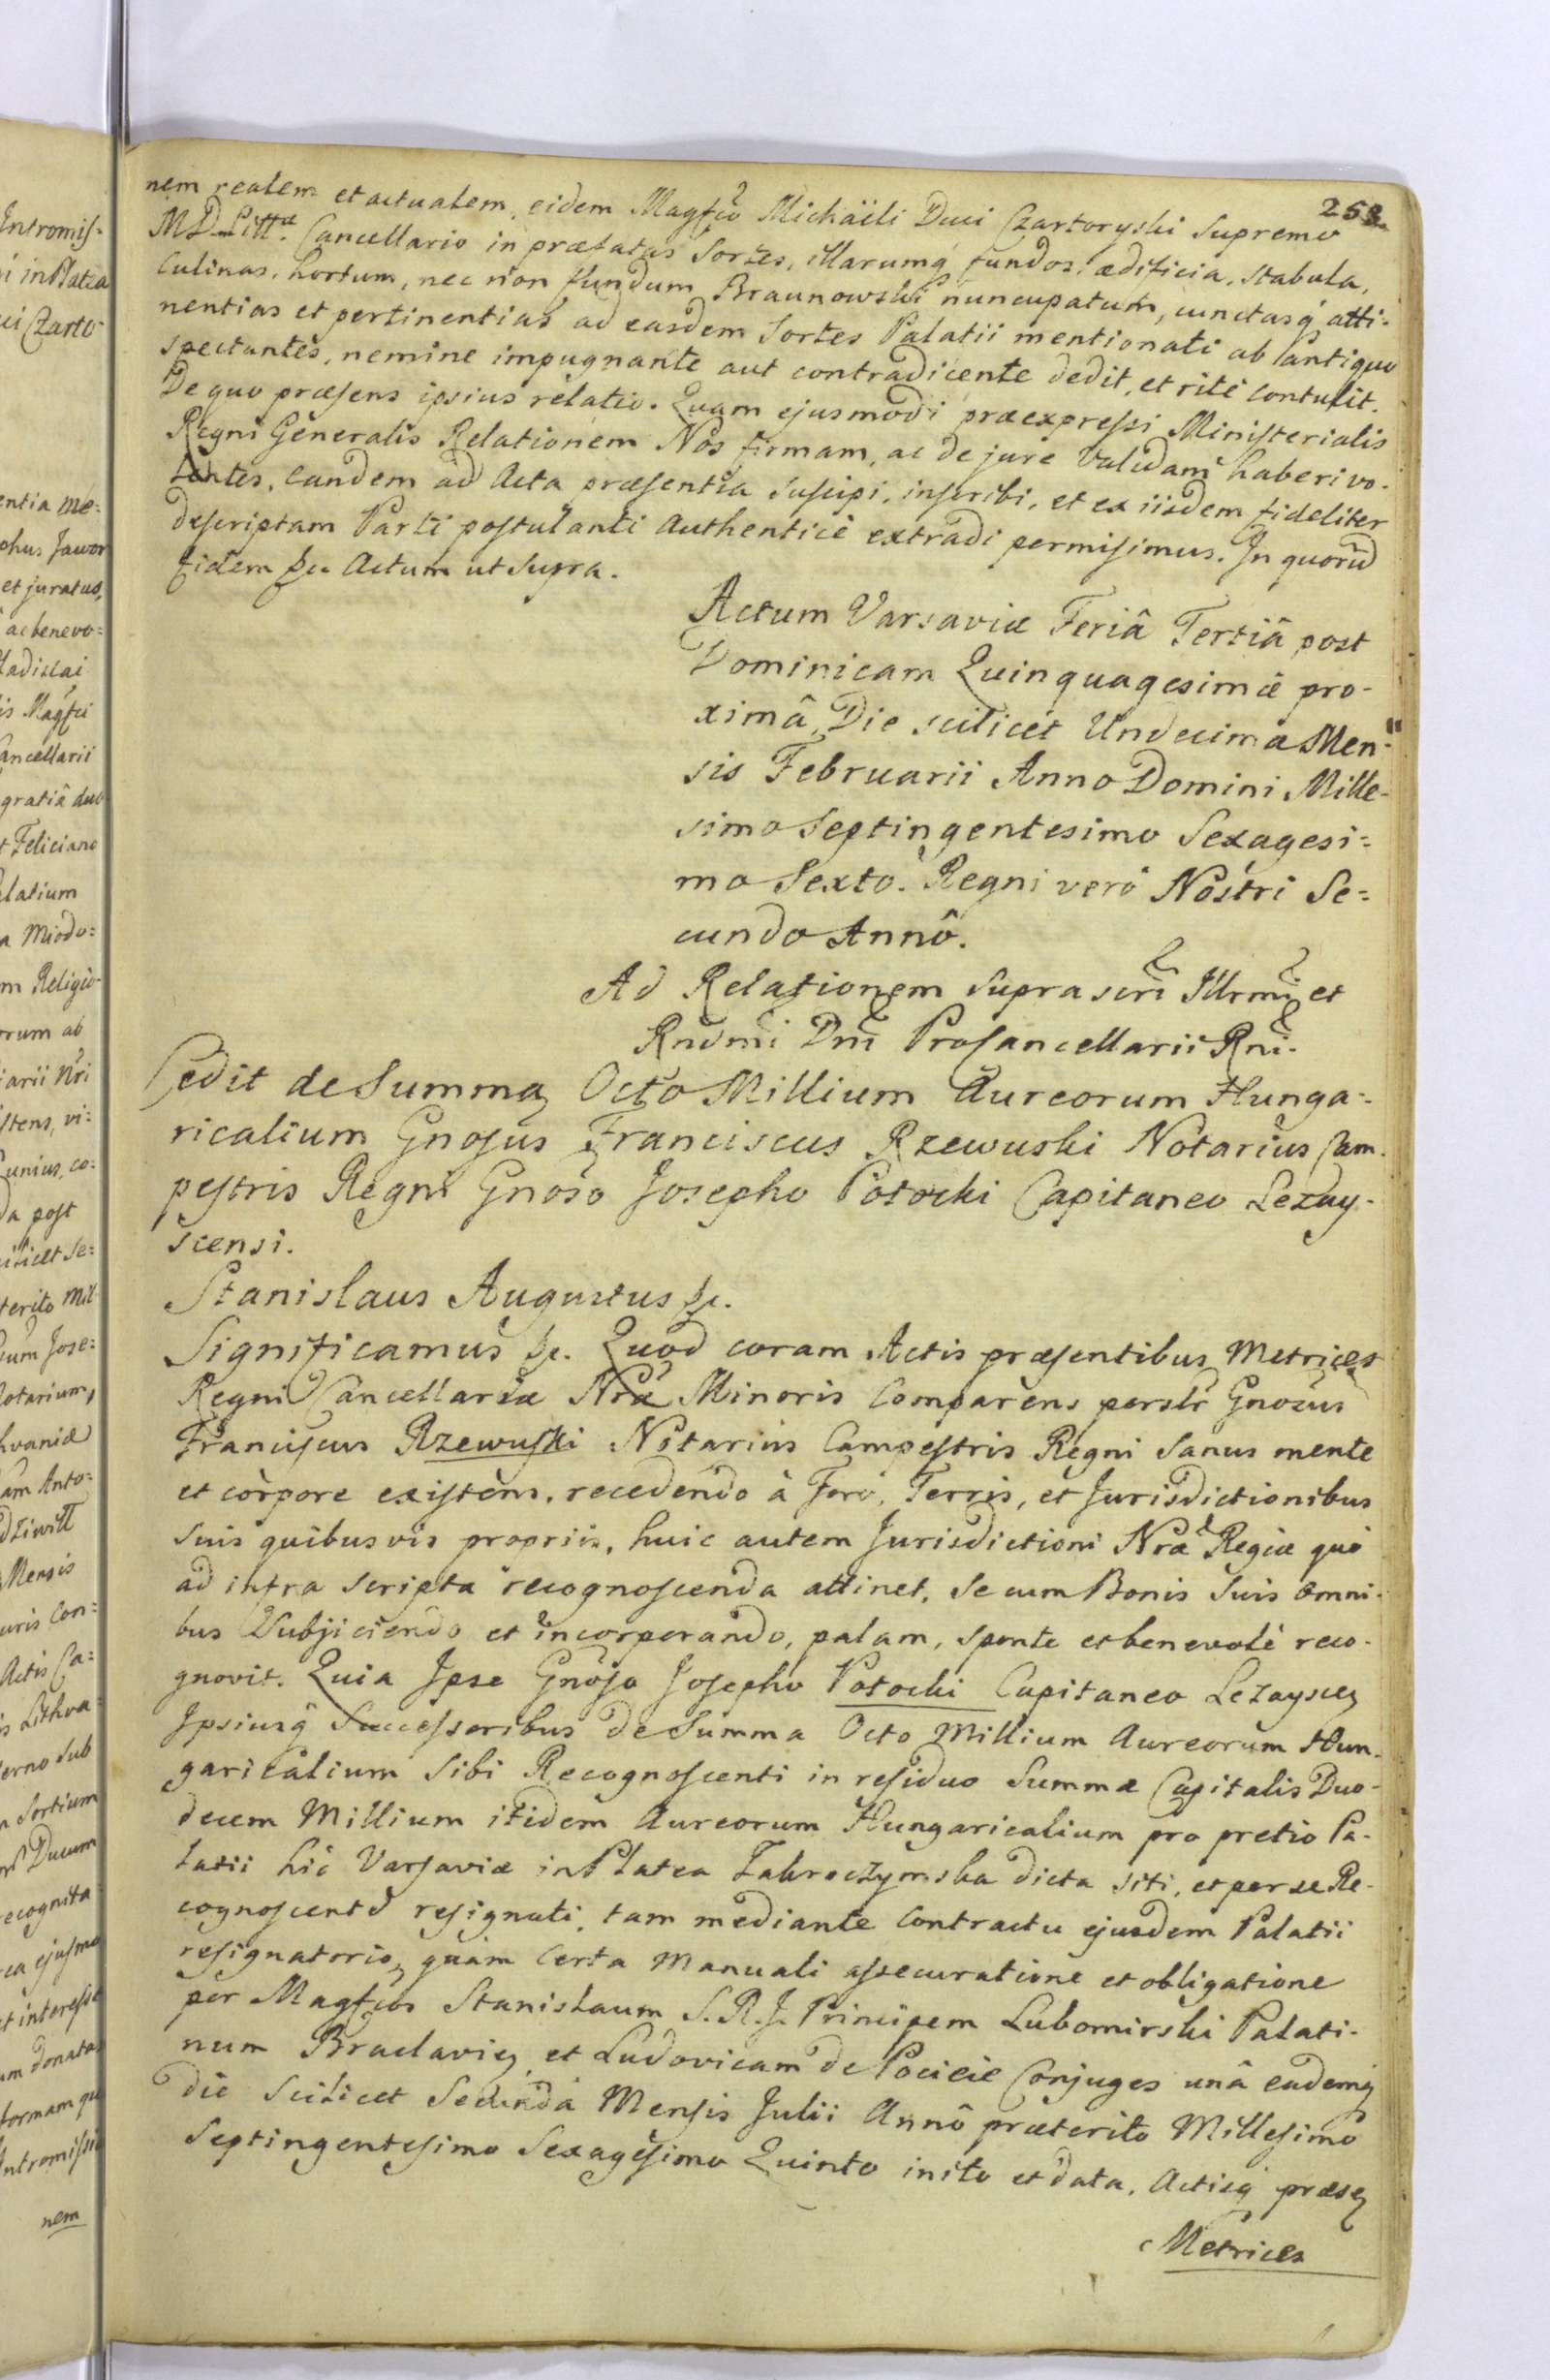 258.
nem realem et actualem, eidem Magfco Michaeli Duci Czartoryski Supremo
M D Litta. Cancellario in præfatas Sortes, illarumq fundos, ædificia, stabula,
Culinas, hortum, nec non fundum Braunowski nuncupatum, cunctasq atti-
nentias et pertinentias ad easdem Sortes Palatii mentionati ab antiquo
spectantes, nemine impugnante aut contradicente dedit, et rite contulit.
De quo præsens ipsius relatio. Quam ejusmodi præexpressi Ministerialis
Regni Generalis Relationem Nos firmam, ac de jure validam haberi vo-
lentes, eandem ad Acta præsentia suscipi, inscribi, et ex iisdem fideliter
descriptam Parti postulanti Authenticè extradi permisimus. In quorũ
fidem &c Actum ut supra.
Actum Varsaviæ Feriâ Tertiâ post
Dominicam Quinquagesimæ pro-
ximâ, Die scilicet Undecima Men-
sis Februarii Anno Domini Mille-
simo Septingentesimo Sexagesi=
mo Sexto. Regni verò Nostri Se=
cundo Annô.
Ad Relationem suprascri Illrmi et
Rndmi Dni Procancellarii Rni.
Cedit de Summa Octo Millium Aureorum Hunga-
ricalium Gnosus Franciscus Rzewuski Notarius Cam-
pestris Regni Gnoso Josepho Potocki Capitaneo Lezay-
scensi.
Stanislaus Augustus &c.
Significamus &c. Quod coram Actis præsentibus Metrices
Regni Cancellariæ Nræ Minoris Comparens perslr Gnosus
Franciscus Rzewuski Notarius Campestris Regni Sanus mente
et corpore existens, recedendo à Foro, Terris, et Jurisdictionibus
suis quibusvis propriis, huic autem Jurisdictioni Nræ Regiæ quò
ad infra scripta recognoscenda attinet, se cum Bonis suis omni-
bus Subjiciendo et incorporando, palam, sponte et benevolè reco-
gnovit. Quia Ipse Gnoso Josepho Potocki Capitaneo Lezayscen
Ipsiusq Successoribus de Summa Octo Millium Aureorum Hun-
garicalium sibi Recognoscenti in residuo Summæ Capitalis Duo-
decem Millium itidem Aureorum Hungaricalium pro pretio Pa-
latii hic Varsaviæ in Platea Zakroczymska dicta siti, et per se Re-
cognoscentẽ resignati, tam mediante Contractu ejusdem Palatii
resignatorio, quàm certa Manuali assecuratione et obligatione
per Magfcos Stanislaum S. R. J. Principem Lubomirski Palati-
num Braclavien et Ludovicam de Pocieie Conjuges unâ eademq
die scilicet Secunda Mensis Julii Annô præterito Millesimo
Septingentesimo Sexagesimo Quinto inito et data, Actisq præsen
Metrices
Intromis=
i in Platea
ui Czarto-
entia me=
phus Jawor
et juratus,
ac benevo=
ladislai
is Magfci
Cancellarii
gratiâ duo
t Feliciano
latium
a Miodo=
m Religio-
rum ab
iarii Nri
stens, vi=
unius, co=
da post
cilicet se=
terito Mil
um Jose=
lotarium,
hvaniæ
am Anto=
dziwill
Mensis
uris Con=
Actis Ca=
is Lithva=
erno sub
n Sortium
Ducum
ecognita
ca ejusmo
t interesse
um donatas
formam qu
Intromissio
nem